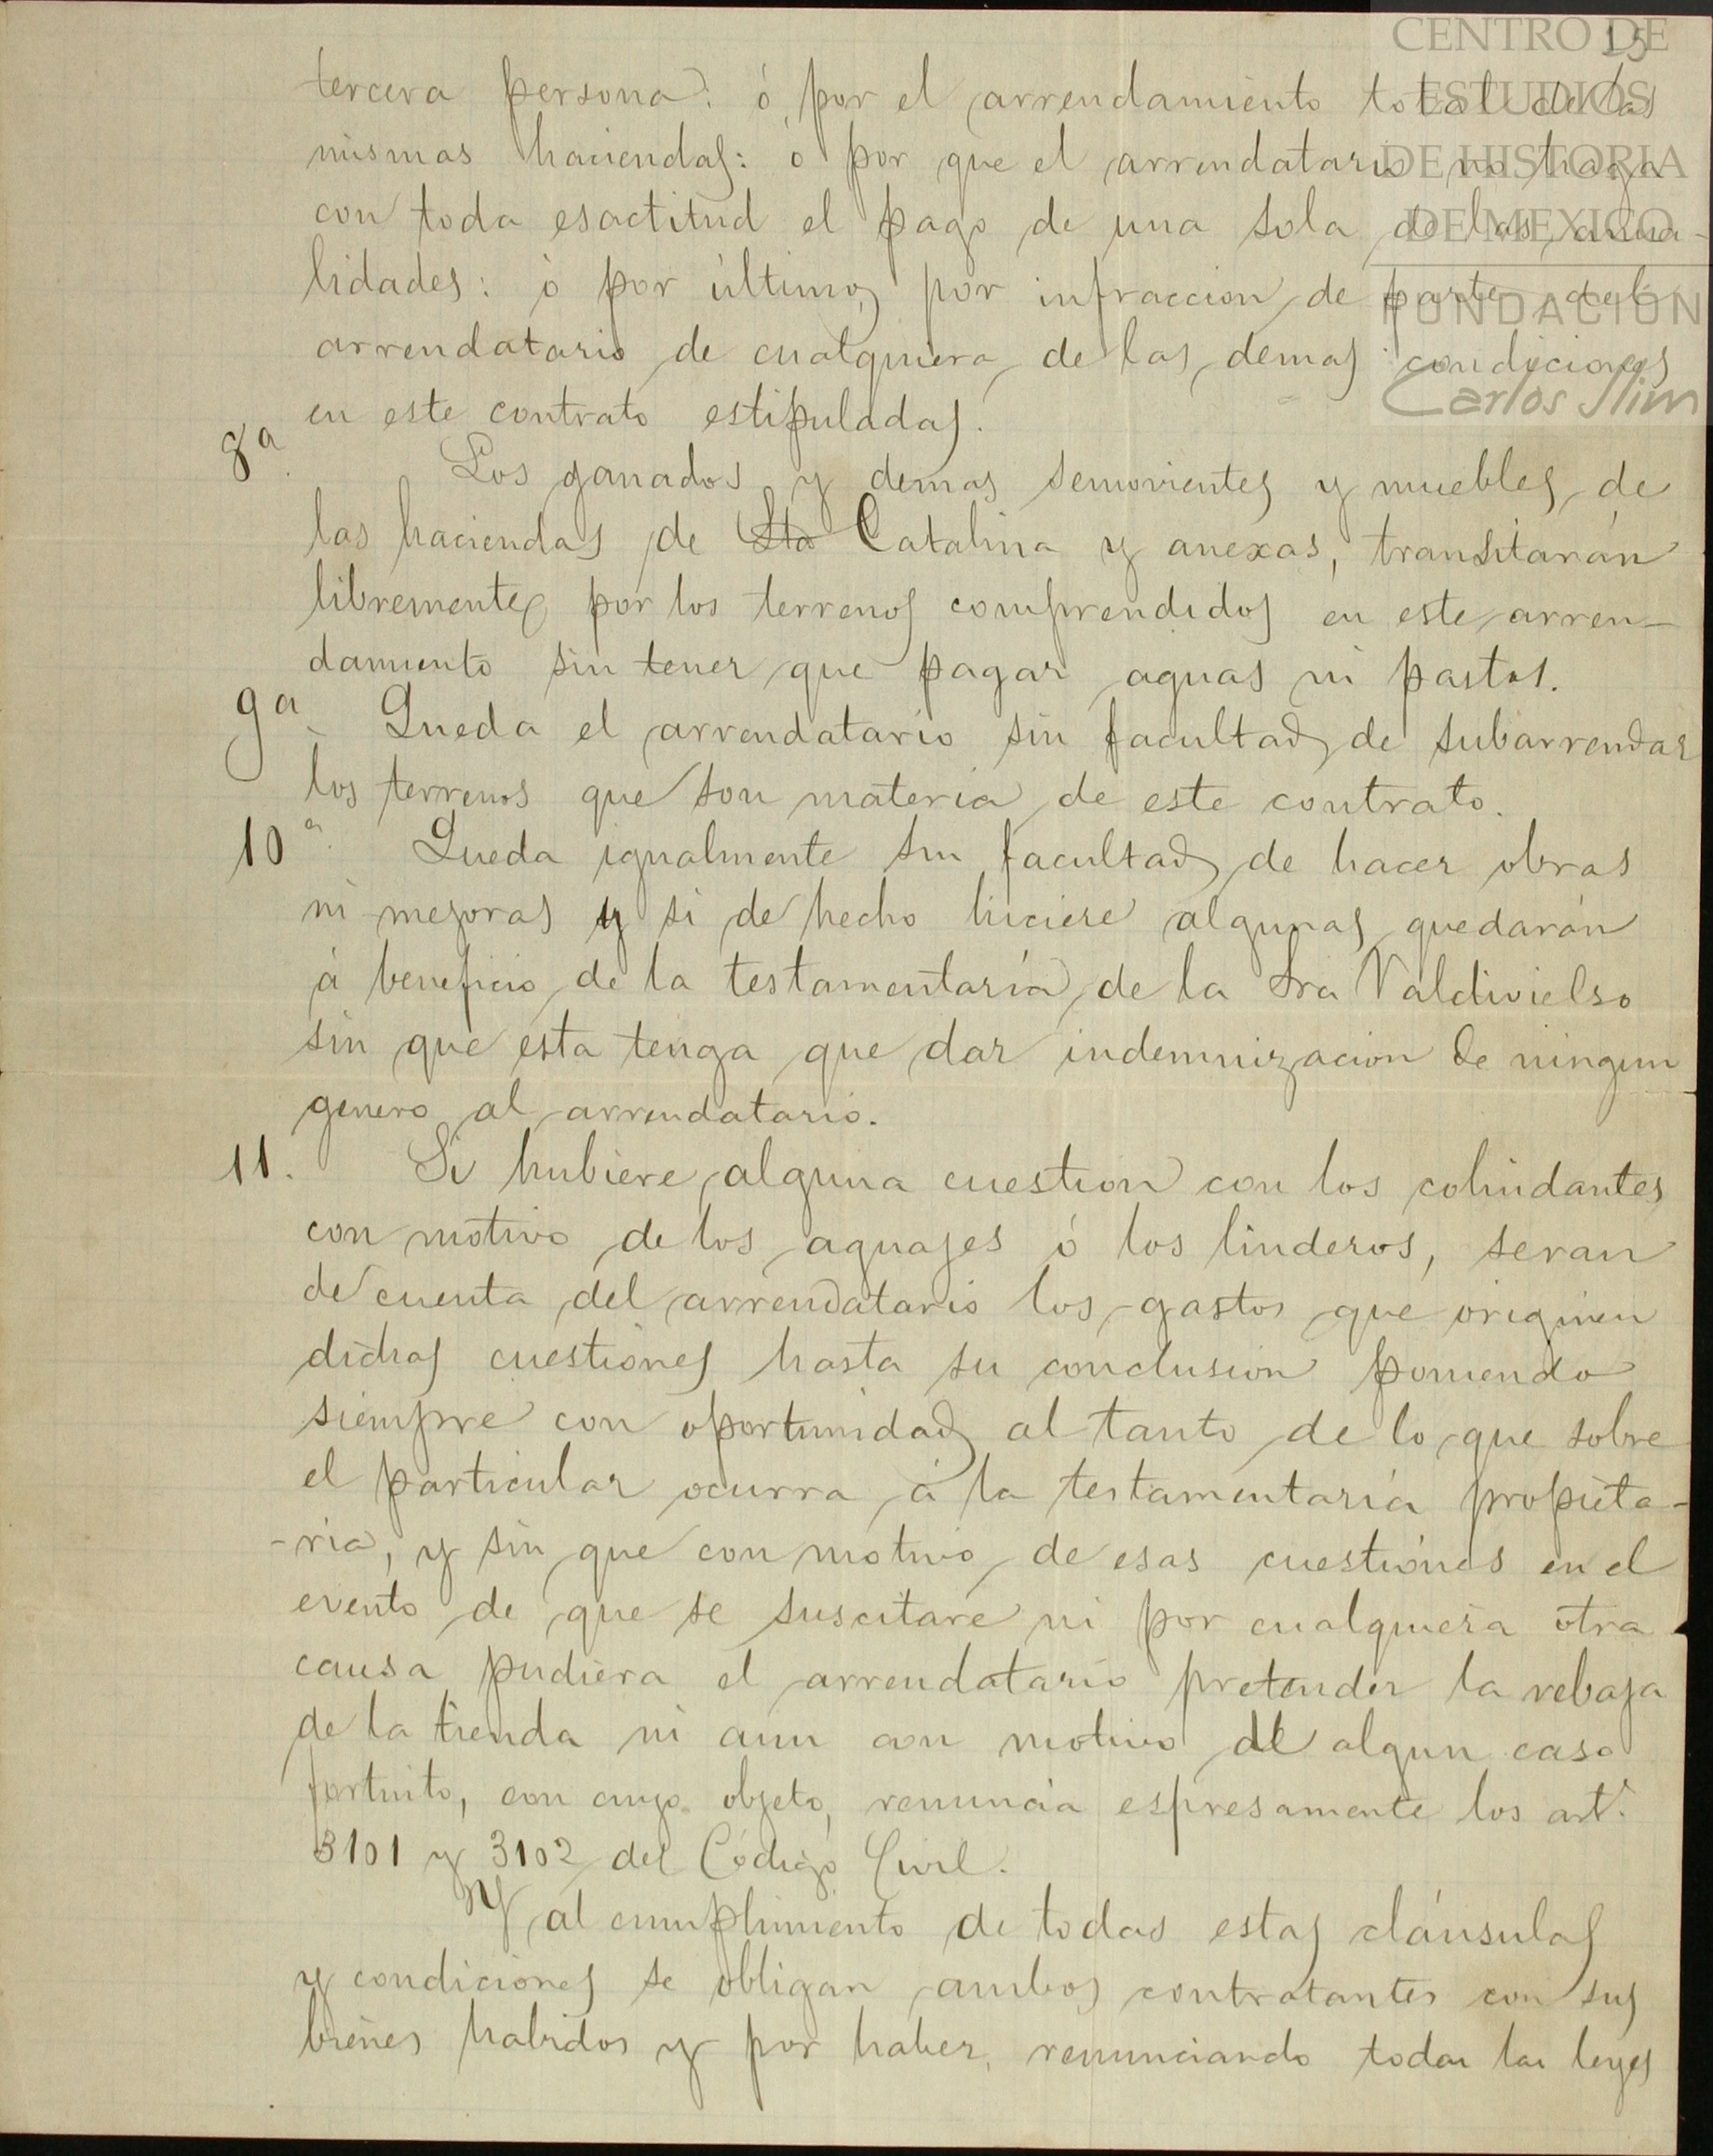 CENTRO DE
ESTUDIOS
DE HISTORIA
DE MEXICO
FUNDACIÓN
Carlos Slim
15
tercera persona: ó por el arrendamiento total de las
mismas haciendas: ó por que el arrendatario no haga
con toda esactitud el pago de una sola de las anua-
lidades: ó por último, por infraccion de parte del
arrendatario de cualquiera de las demas condiciones
en este contrato estipuladas.
8a. Los ganados y demas semovientes y muebles de
las haciendas de Sta Catalina y anexas, transitarán
libremente por los terrenos comprendidos en este arren-
damiento sin tener que pagar aguas ni pastos.
9a. Queda el arrendatario sin facultad de subarrendar
los terrenos que son materia de este contrato.
10a. Queda igualmente sin facultad de hacer obras
ni mejoras y si de hecho hiciere algunas quedarán
á beneficio de la testamentaría de la Sra Valdivielso
sin que esta tenga que dar indemnizacion de ningun
genero al arrendatario.
11. Si hubiere alguna cuestion con los colindantes
con motivo de los aguajes ó los linderos, seran
de cuenta del arrendatario los gastos que originen
dichas cuestiones hasta su conclusion poniendo
siempre con oportunidad al tanto de lo que sobre
el particular ocurra á la testamentaria propieta-
-ria, y sin que con motivo de esas cuestiones en el
evento de que se suscitare ni por cualquiera otra
causa pudiera el arrendatario pretender la rebaja
de la tienda ni aun con motivo de algun caso
fortuito, con cuyo objeto, renuncia espresamente los art.s
3101 y 3102 del Código Civil.
Y al cumplimiento de todas estas cláusulas
y condiciones se obligan ambos contratantes con sus
bienes habidos y por haber, renunciando todas las leyes